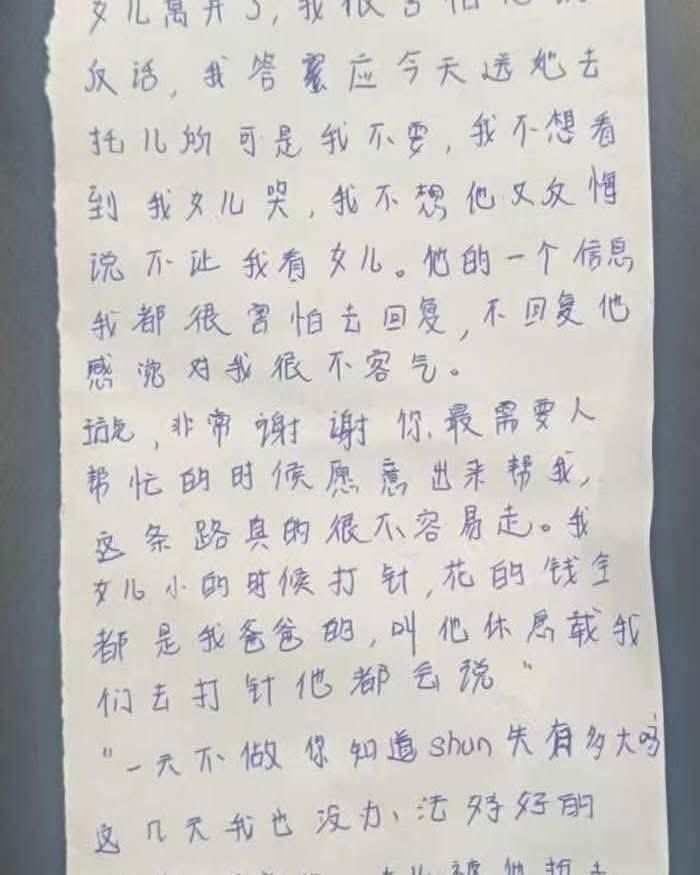 女儿离开了，我很害怕他说
反话，我答案应今天送她去
托儿所可是我不要，我不想看
到我女儿哭，我不想他又反悔
说不让我看女儿。他的一个信息
我都很害怕去回复，不回复他
感觉对我很不客气。
，非常谢谢你、最需要人
帮忙的时候愿意出来帮我，
这条路真的很不容易走。我
女儿小的时候打针，花的钱全
都是我爸爸的，叫他休息载我
们去打针他都会说"
"一天不做你知道shun失有多大吗
这几天我也没办、法好好的
被他